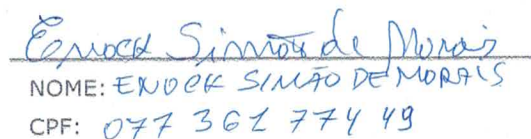 Enock Simão de Morais
NOME: ENOCK SIMÃO DE MORAIS
CPF: 077 361 774 49